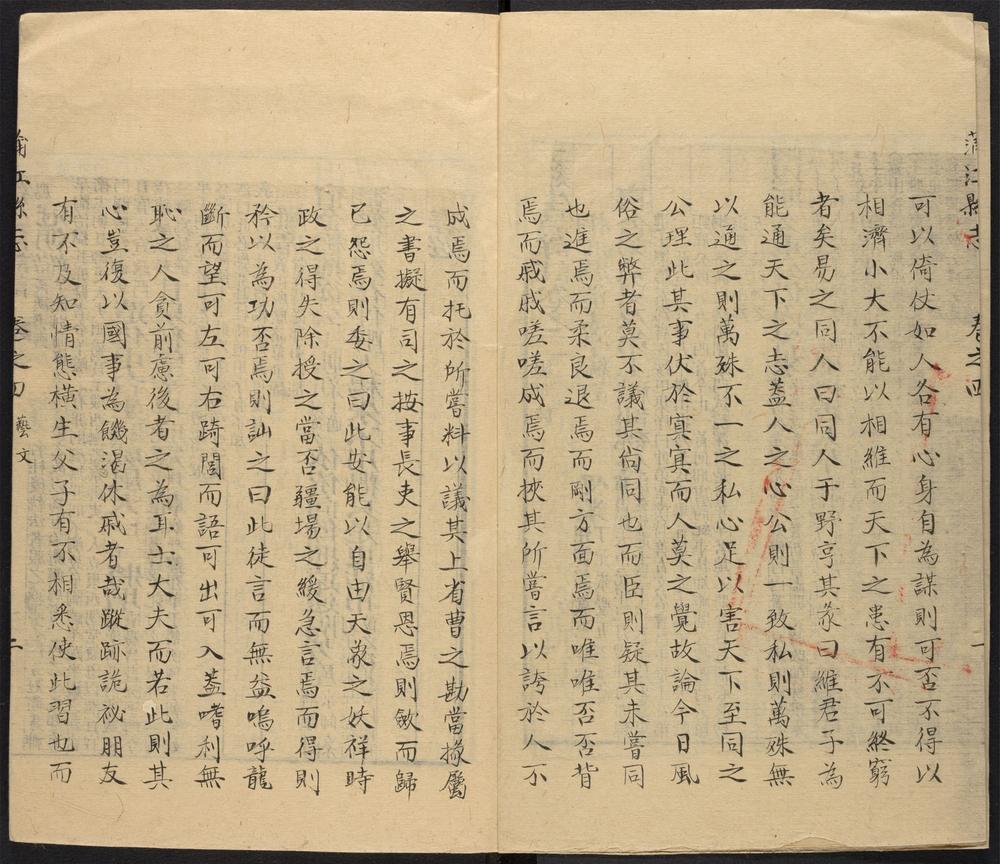 蒲江縣志 卷之四 一
可以倚仗如人各有心身自為謀則可否不得以
相濟小大不能以相維而天下之患有不可終窮
者矣易之同人曰同人于野亨其彖曰維君子為
能通天下之志蓋人之心公則一致私則萬殊無
以通之則萬殊不一之私心足以害天下至同之
公理此其事伏於寞寞而人莫之覺故論今日風
俗之弊者莫不議其尙同也而臣則疑其未嘗同
也進焉而柔良退焉而剛方面焉而唯唯否否背
焉而戚戚嗟嗟成焉而挾其所嘗言以誇於人不
成焉而托於所嘗料以議其上省曹之勘當掾屬
之書擬有司之按事長吏之舉賢恩焉則斂而歸
已怨焉則委之曰此安能以自由天象之妖祥時
政之得失除授之當否疆場之緩急言焉而得則
矜以為功否焉則訕之曰此徒言而無益嗚呼龍
斷而望可左可右踦閭而語可出可入葢嗜利無
恥之人貪前慮後者之為耳士大夫而若此則其
心豈復以國事為饑渴休戚者哉蹤跡詭祕朋友
有不及知情態橫生父子有不相悉使此習也而
蒲江縣志 卷之四 藝文 二